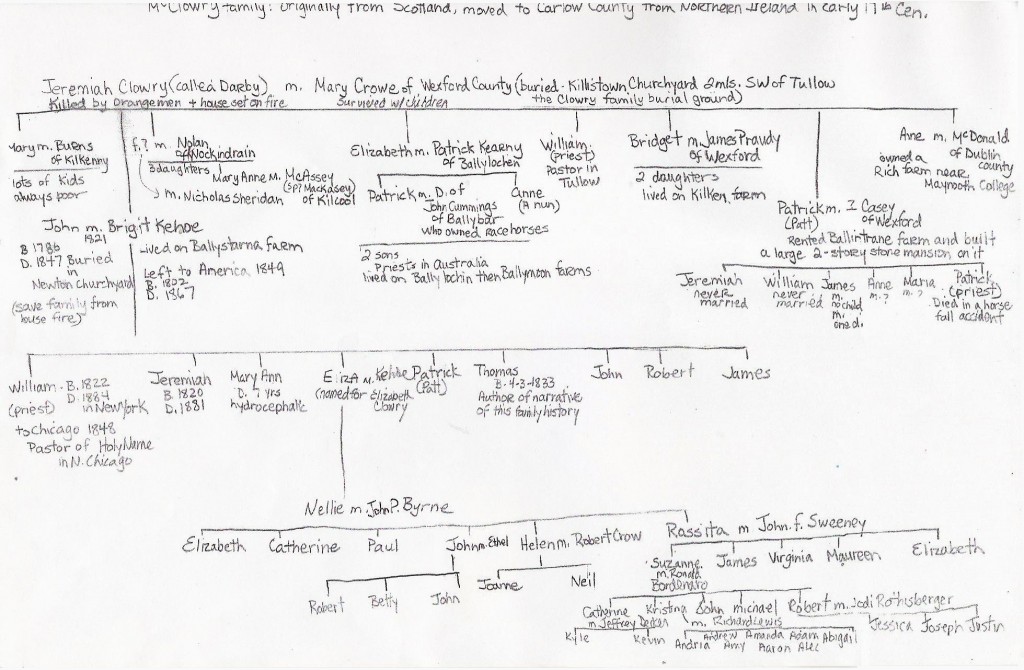 McClowry family: originally from Scotland, moved to Carlow County from Northern Ireland in early 17th Cen.
Jeremiah Clowry (called Darby) m. Mary Crowe of Wexford County (buried - Killistown Churchyard 2mls. SW of Tullow
Killed by Orangemen + house set on fire
survived w/children
the Clowry family burial ground)
Mary m. Burns
of Kilkenny
lots of kids
always poor
f.? m. Nolan
of Knockindrain
3 daughters
Mary Anne m. McAssey
(sp? Mackasey)
of Kilcool
m. Nicholas Sheridan
Elizabeth m. Patrick Kearny
of Ballylochen
Patrick m. D. of
John Cummings
of Ballybar
who owned racehorses
Anne
(A nun)
2 sons
Priests in Australia
lived on Ballylochin then Ballymoon farms
William
(priest)
Pastor in
Tullow
Bridget m. James Praudy
of Wexford
2 daughters
lived on Kilken farm
Patrick m. I Casey
(Patt) of Wexford
Rented Ballintrane farm and built
a large 2-story stone mansion on it
Anne m. McDonald
of Dublin
county
owned a
Rich farm near
Maynooth College
Jeremiah
never
married
William
never
married
James
m.
no child
m.
one d.
Anne
m. ?
Maria
m. ?
Patrick
(priest)
Died in a horse
fall accident
John m. Brigit Kehoe
1821
B 1786
D. 1847 Buried
in
Newton Churchyard
(save family from
house fire)
Lived on Ballystarna farm
Left to America 1849
B. 1802
D. 1867
William - B. 1822
D. 1884
(priest) in New York
to Chicago 1848
Pastor of Holy Name
in N. Chicago
Jeremiah
B. 1820
D. 1881
Mary Ann
D. 7 yrs
hydrocephalic
Eliza m. Kehoe
(named for Elizabeth
Clowry
Patrick
(Patt)
Thomas
B. 4-3-1833
Author of narrative
of this family history
John
Robert
James
Nellie m. John P. Byrne
Elizabeth
Catherine
Paul
John m. Ethel
Helen m. Robert Crow
Rossita m John. f. Sweeney
Robert
Betty
John
Joanne
Neil
Suzanne
m. Ronald
Bordenaro
James
Virginia
Maureen
Elizabeth
Catherine
m. Jeffrey
Kristina
John
michael
Robert m. Jodi Rothisberger
m. Richard Lewis
Kyle
Kevin
Andria
Andrew
Amy
Amanda
Aaron
Adam
Alec
Abigail
Jessica
Joseph
Justin